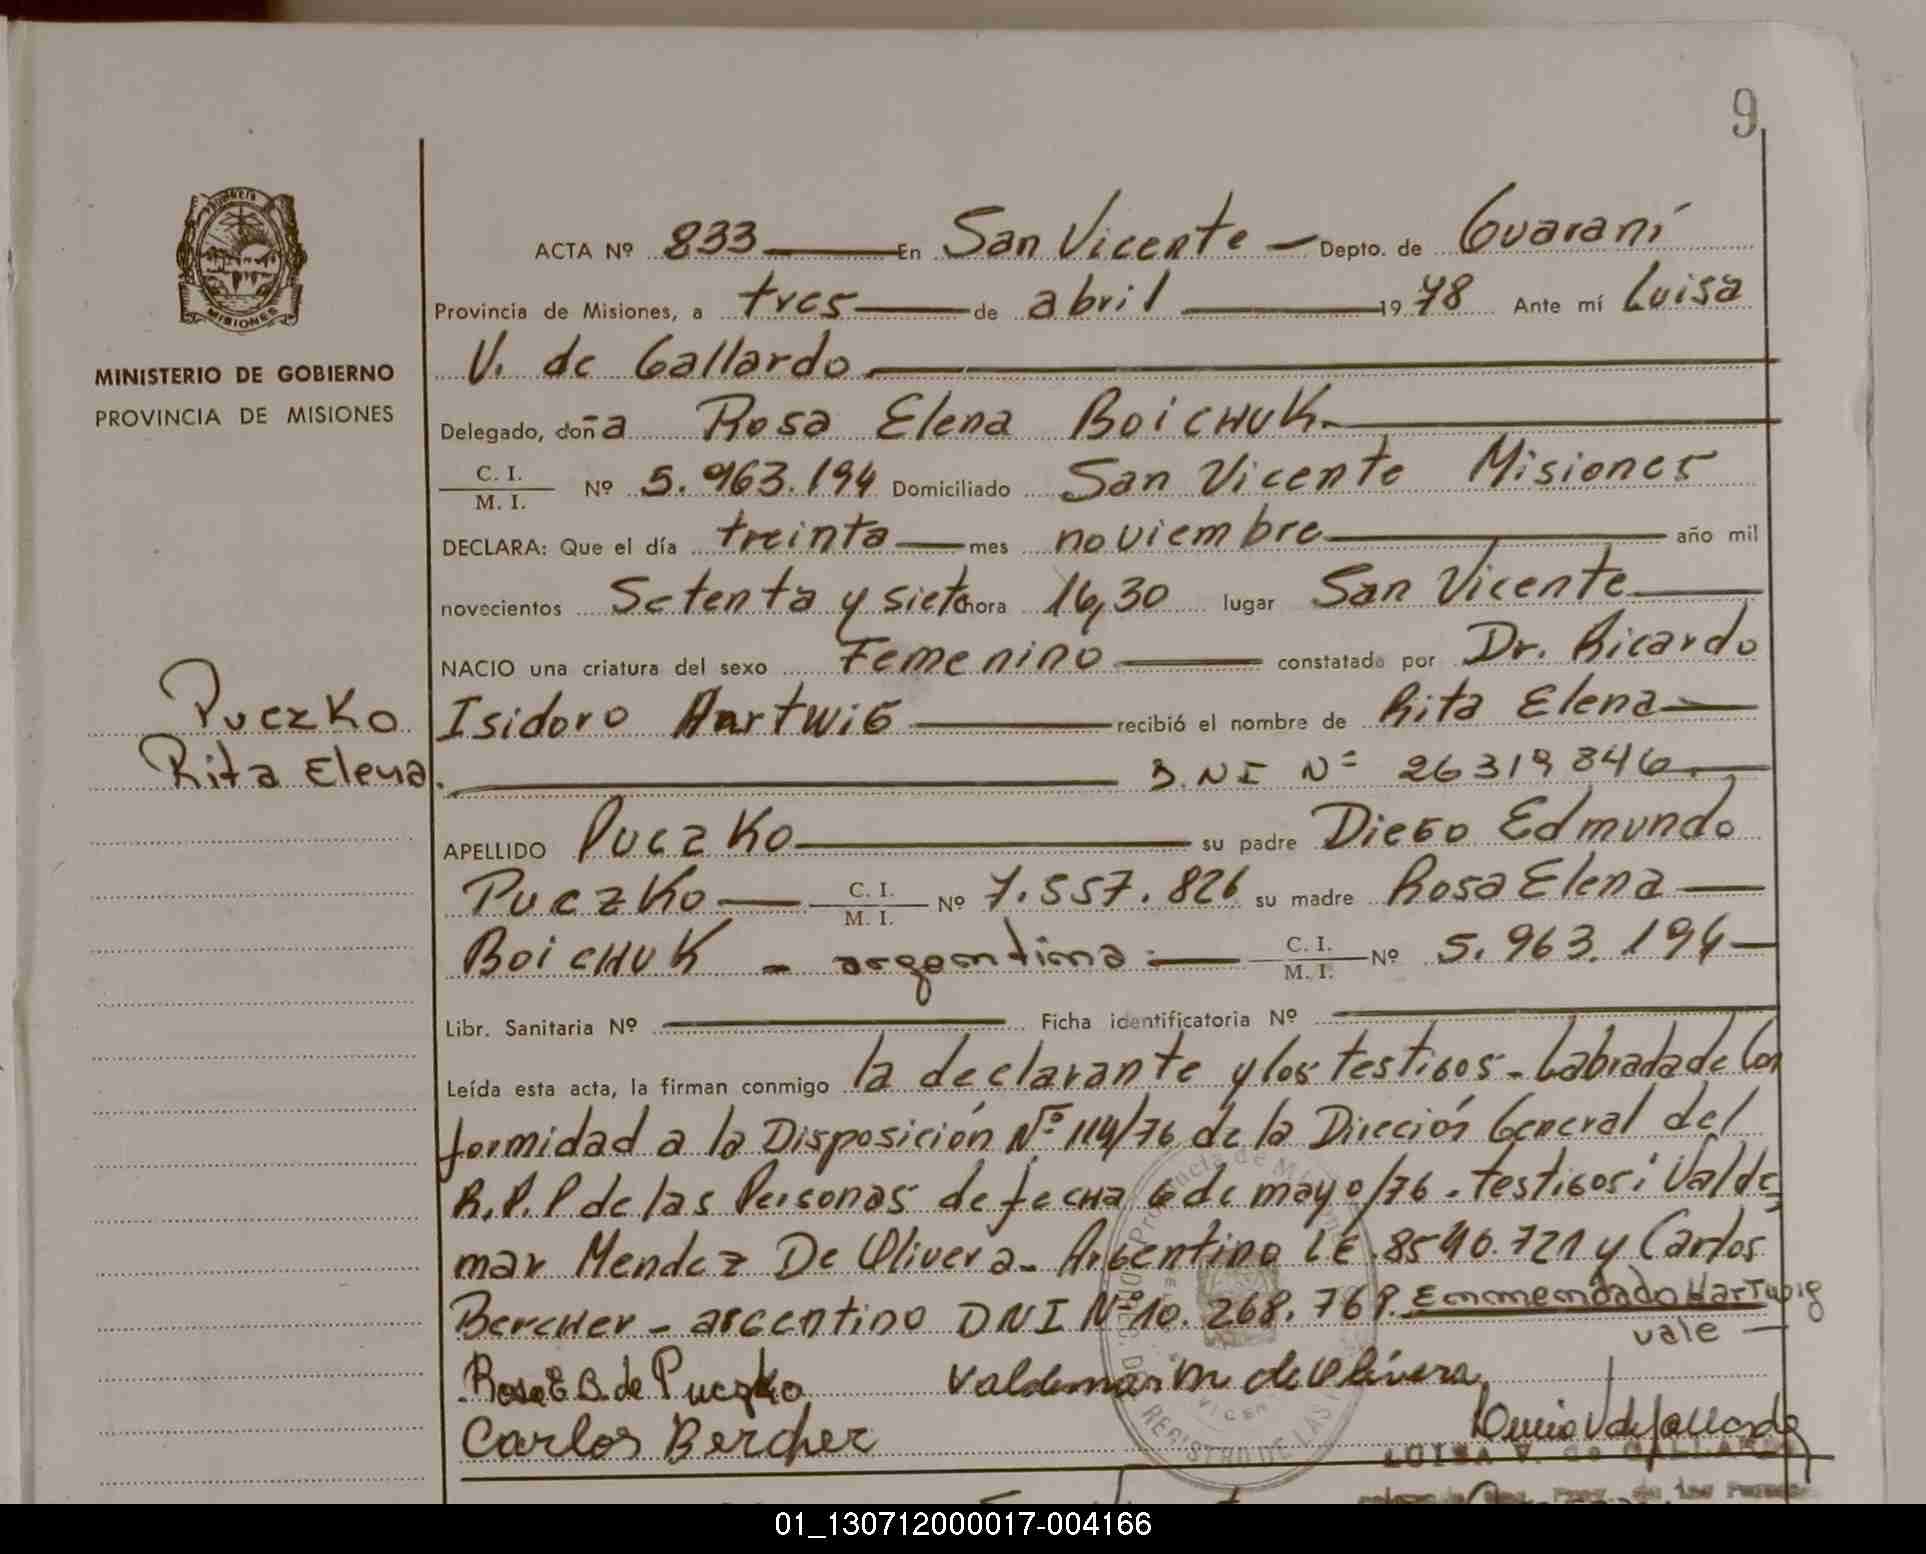 9
PROVINCIA
MISIONES
MINISTERIO DE GOBIERNO
PROVINCIA DE MISIONES
Puczko
Rita Elena
ACTA Nº 833 En San Vicente - Depto. de Guaraní
Provincia de Misiones, a tres de abril 1978 Ante mí Luisa
V. de Gallardo
Delegado, doña Rosa Elena BoicHuK
C. I. / M. I. Nº 5.963.194 Domiciliado San Vicente Misiones
DECLARA: Que el día treinta mes noviembre año mil
novecientos Setenta y siete hora 16,30 lugar San Vicente
NACIO una criatura del sexo Femenino constatada por Dr. Ricardo
Isidoro Hartwig recibió el nombre de Rita Elena
D.N.I Nº 26319846
APELLIDO PuczKo su padre Diego Edmundo
PuczKo C. I. / M. I. Nº 7.557.826 su madre Rosa Elena
BoicHuK - argentina C. I. / M. I. Nº 5.963.194
Libr. Sanitaria Nº Ficha identificatoria Nº
Leída esta acta, la firman conmigo la declarante y los testigos - Labrada de Con
formidad a la Disposición Nº 114/76 de la Dirección General del
R.P.P de las Personas de fecha 6 de mayo/76. testigos: Valde
mar Mendez De Olivera - Argentino LE. 8546.721 y Carlos
Bercher - argentino DNI Nº 10.268.769. Emmendado Hartwig
vale
Rosa E B. de Puczko Valdemar M de Olivera
Carlos Bercher Luisa V de Gallardo
LUISA V. de GALLARDO
Provincia de Misiones
REGISTRO DE LAS
01_130712000017-004166